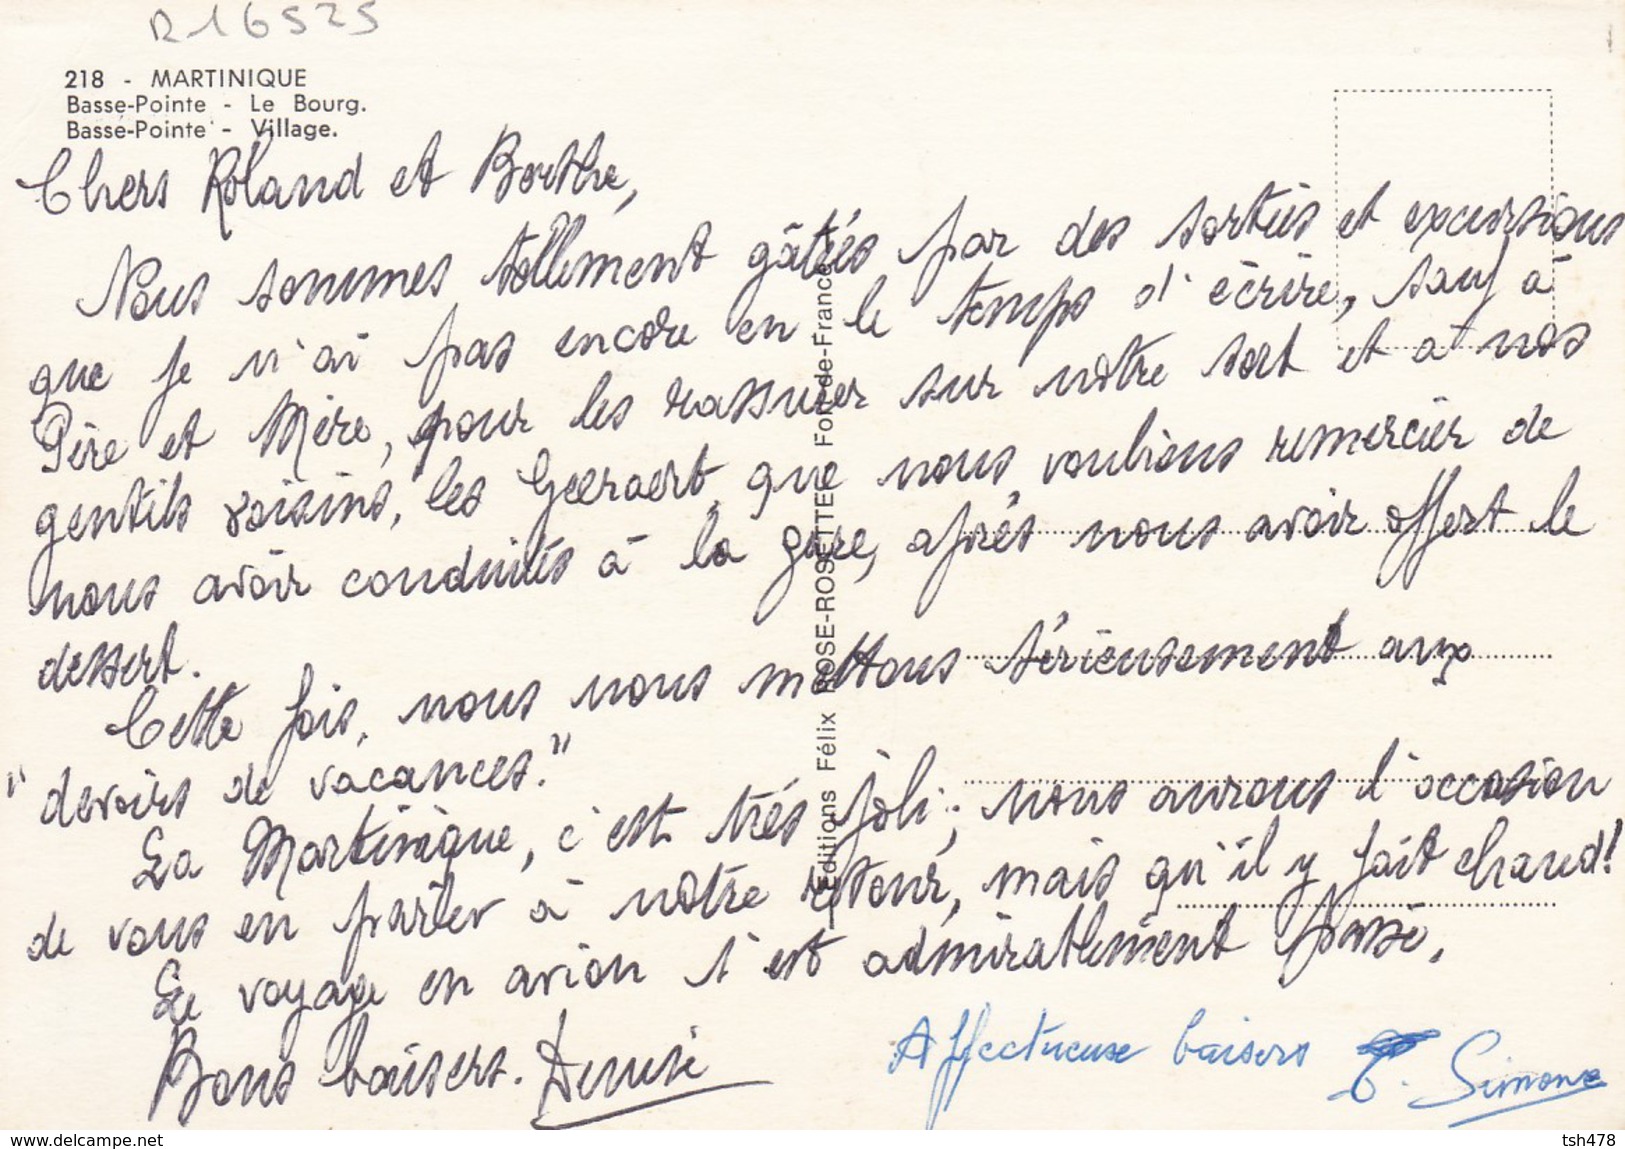 R16525
218 - MARTINIQUE
Basse-Pointe - Le Bourg.
Basse-Pointe - Village.
Chers Roland et Berthe,
Nous sommes tellement gâtées par des sorties et excursions
que je n'ai pas encore eu le temps d'écrire, sauf à
Père et Mère, pour les rassurer sur notre sort et à nos
gentils voisins, les Geeraert, que nous voulions remercier de
nous avoir conduites à la gare, après nous avoir offert le
dessert.
Cette fois, nous nous mettons sérieusement aux
"devoirs de vacances."
La Martinique, c'est très joli; nous aurons l'occasion
de vous en parler à notre retour, mais qu'il y fait chaud!
Le voyage en avion s'est admirablement passé.
Bons baisers. Denise
Affectueuse baisers T. Simone
Editions Félix ROSE-ROSETTE Fort-de-France
www.delcampe.net
tsh478